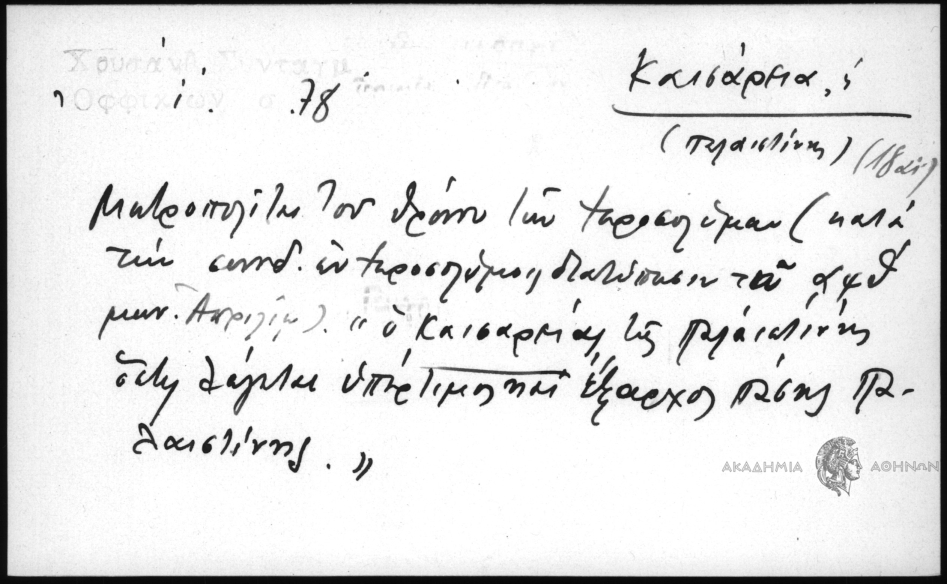 Χρυσάνθ. Συνταγμ
Ὀφφικίων σ. 78
Καισάρεια, ἡ
(Παλαιστίνης) (18 αἰ)
Μητροπολῖται τοῦ θρόνου τῶν Ἱεροσολύμων (κατὰ
τὴν συνοδ. ἐν Ἱεροσολύμοις διατύπωσιν τοῦ αψθ
μην. Ἀπριλίῳ). "ὁ Καισαρείας τῆς Παλαιστίνης
ὅστις λέγεται ὑπέρτιμος καὶ ἔξαρχος πάσης Πα-
λαιστίνης."
ΑΚΑΔΗΜΙΑ ΑΘΗΝΩΝ